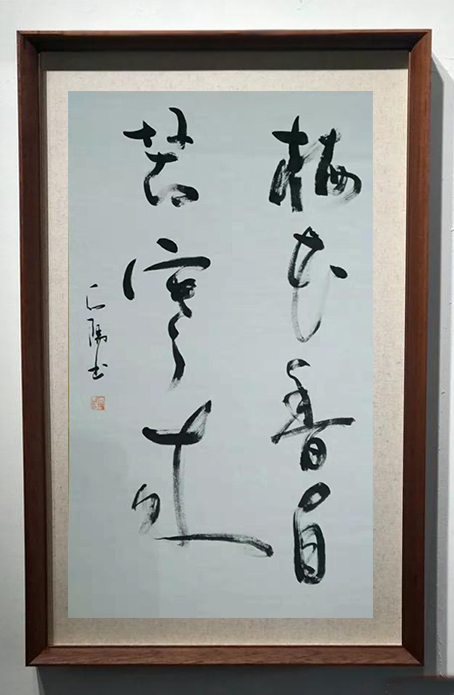 梅花香自
苦寒来
书